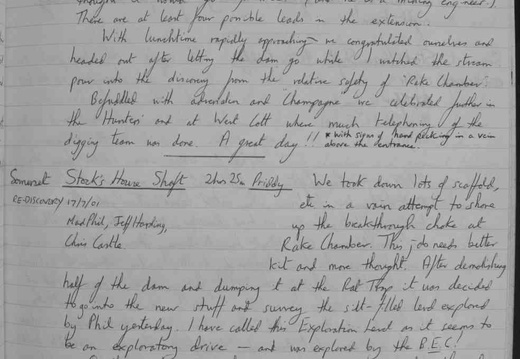 There are at least four possible leads in the extension.
With lunchtime rapidly approaching we congratulated ourselves and
headed out after letting the dam go while I watched the stream
pour into the discovery from the relative safety of 'Rake Chamber'.
Befuddled with adrenalin and Champagne we celebrated further in
the 'Hunters' and at West Cott where much telephoning of the
digging team was done. A great day!! * with signs of hand picking in a vein
above the entrance.
Somerset Stock's House Shaft 2hr 25m Priddy We took down lots of scaffold,
RE-DISCOVERY 17/7/01 etc in a vain attempt to shore
Mad Phil, Jeff Harding, up the breakthrough choke at
Chris Castle Rake Chamber. This job needs better
kit and more thought. After demolishing
half of the dam and dumping it at the Rat Trap it was decided
to go into the new stuff and survey the silt-filled level explored
by Phil yesterday. I have called this Exploration Level as it seems to
be an exploratory drive – and was explored by the B.E.C!